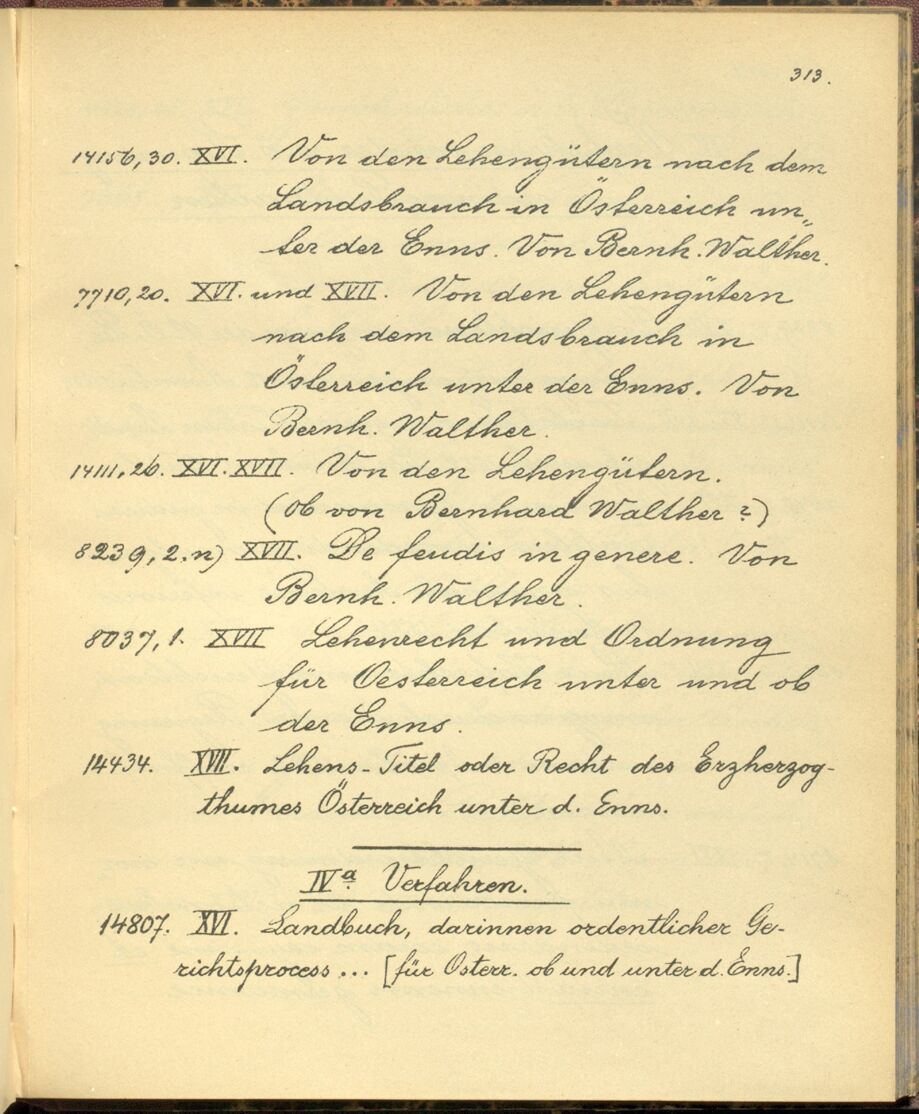 313.
14156,30. XVI. Von den Lehengütern nach dem
Landsbrauch in Österreich un„
ter der Enns. Von Bernh. Walther.
7710,20. XVI. und XVII. Von den Lehengütern
nach dem Landsbrauch in
Österreich unter der Enns. Von
Bernh. Walther.
14111,26. XVI. XVII. Von den Lehengütern.
(ob von Bernhard Walther?)
8239,2.n) XVII. De feudis in genere. Von
Bernh. Walther.
8037,1. XVII Lehenrecht und Ordnung
für Oesterreich unter und ob
der Enns.
14434. XVII. Lehens-Titel oder Recht des Erzherzog-
thumes Österreich unter d. Enns.
IVa. Verfahren.
14807. XVI. Landbuch, darinnen ordentlicher Ge-
richtsprocess... [für Österr. ob und unter d. Enns.]